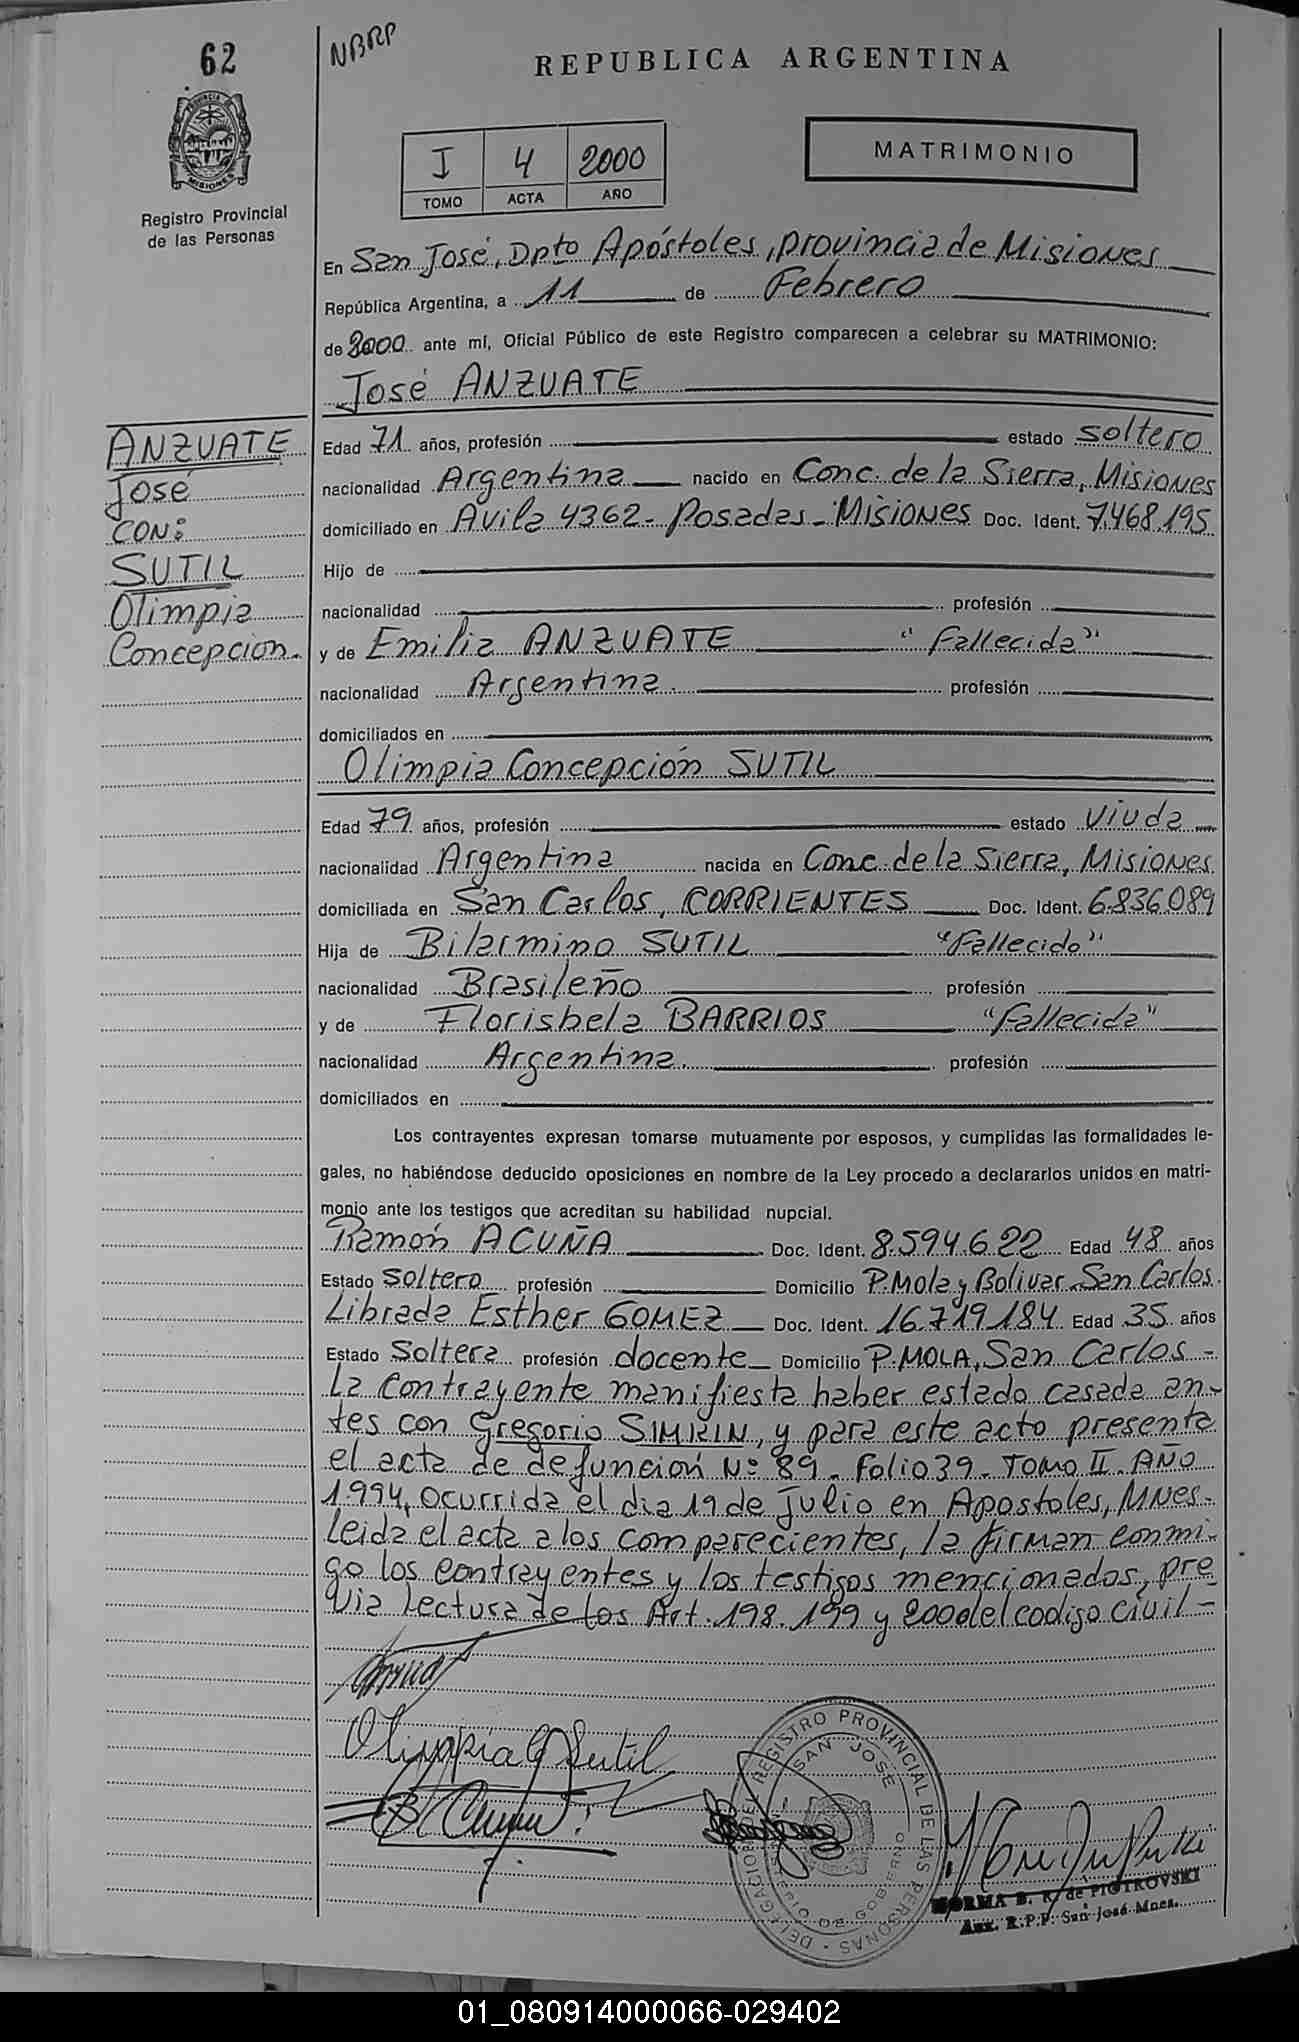 62
NBRP
REPUBLICA ARGENTINA
PROVINCIA DE
MISIONES
Registro Provincial
de las Personas
I 4 2000
TOMO ACTA AÑO
MATRIMONIO
En San José, Dpto Apóstoles, provincia de Misiones
República Argentina, a 11 de Febrero
de 2000 ante mí, Oficial Público de este Registro comparecen a celebrar su MATRIMONIO:
José ANZUATE
ANZUATE
José
CON:
SUTIL
Olimpia
Concepcion.
Edad 71 años, profesión estado soltero
nacionalidad Argentina nacido en Conc. de la Sierra, Misiones
domiciliado en Avila 4362 - Posadas - Misiones Doc. Ident. 7.468.195
Hijo de
nacionalidad profesión
y de Emilia ANZUATE "Fallecida"
nacionalidad Argentina. profesión
domiciliados en
Olimpia Concepción SUTIL
Edad 79 años, profesión estado Viuda
nacionalidad Argentina nacida en Conc. de la Sierra, Misiones
domiciliada en San Carlos, CORRIENTES Doc. Ident. 6.836.089
Hija de Bilarmino SUTIL "Fallecido"
nacionalidad Brasileño profesión
y de Florisbela BARRIOS "Fallecida"
nacionalidad Argentina. profesión
domiciliados en
Los contrayentes expresan tomarse mutuamente por esposos, y cumplidas las formalidades le-
gales, no habiéndose deducido oposiciones en nombre de la Ley procedo a declararlos unidos en matri-
monio ante los testigos que acreditan su habilidad nupcial.
Ramón ACUÑA Doc. Ident. 8.594.622 Edad 48 años
Estado soltero profesión Domicilio P. Mola y Bolivar - San Carlos.
Librada Esther GOMEZ Doc. Ident. 16.719.184 Edad 35 años
Estado Soltera profesión docente Domicilio P. MOLA, San Carlos -
La Contrayente manifiesta haber estado casada an-
tes con Gregorio SIMKIN, y para este acto presenta
el acta de defuncion Nº 89 - Folio 39 - TOMO II - AÑO
1.994, ocurrida el dia 19 de julio en Apostoles, MNES -
Leida el acta a los comparecientes, la firman conmi-
go los contrayentes y los testigos mencionados, pre
via lectura de los Art. 198. 199 y 200 del codigo civil -
Olimpia C Sutil
DELEGACION DEL REGISTRO PROVINCIAL DE LAS PERSONAS
SAN JOSE
MINISTERIO DE GOBIERNO
NORMA B. R. de PIOTROVSKI
Aux. R.P.P. San José Mnes.
01_080914000066-029402